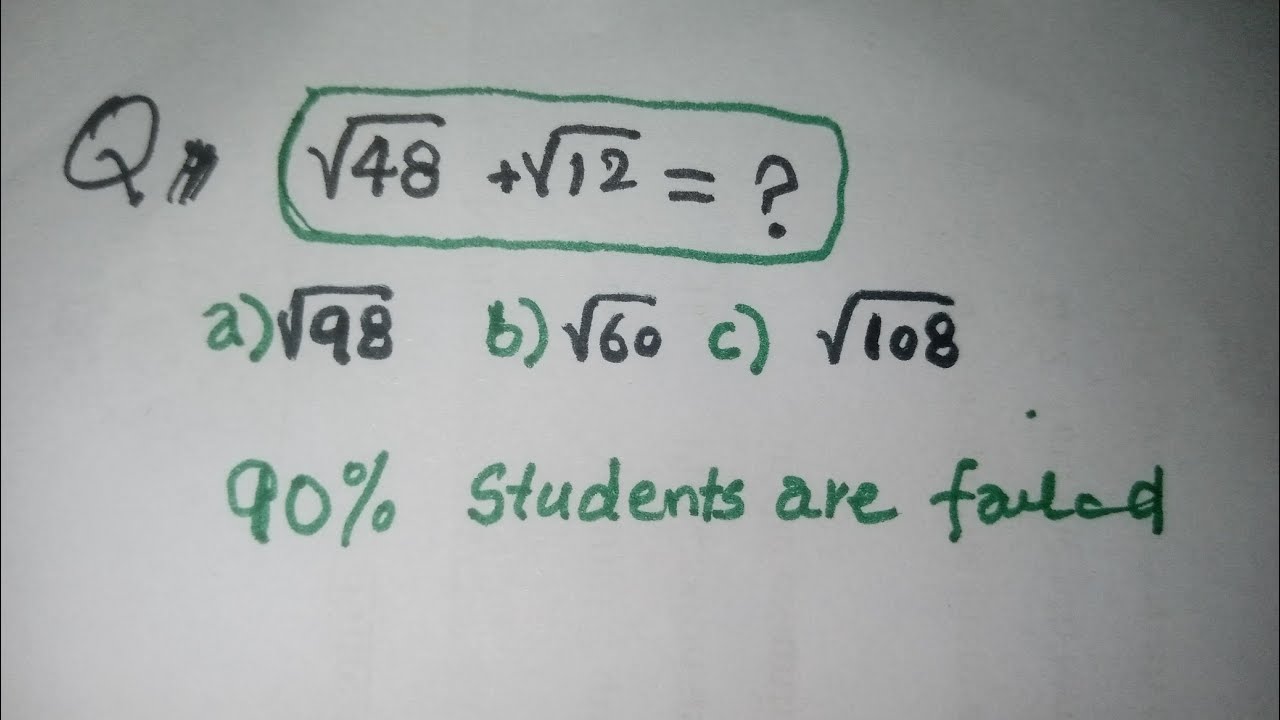 Q, √48 + √12 = ?
a) √98 b) √60 c) √108
90% Students are failed